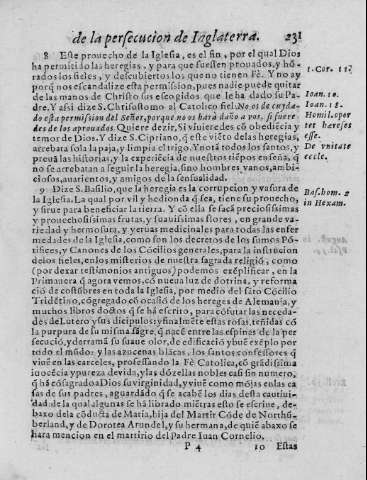 de la persecucion de Inglaterra. 231
8 Este prouecho de la Iglesia, es el fin, por el qual Dios
ha permitido las heregias, y para que fuessen prouados, y hõ-
rados los fieles, y descubiertos los que no tienen Fè. Y no ay
porq̃ nos escandalize esta permission, pues nadie puede quitar
de las manos de Christo sus escogidos que le ha dado su Pa-
dre. Y assi dize S. Chrisostomo al Catolico fiel No os de cuyda-
do esta permission del Señor, porque no os harà daño a vos, si fuere-
des de los aprouados. Quiere dezir, Si viuieredes cõ obediẽcia y
temor de Dios. Y dize S. Cipriano, q̃ este viẽto delas heregias,
arrebata sola la paja, y limpia el trigo. Y nota todos los santos, y
prouà las historias, y la experiẽcia de nuestros tiẽpos enseña, q̃
no se arrebatan a seguir la heregia, sino hombres vanos, ambi-
ciosos, auarientos, y amigos de la sensualidad.
9 Dize S. Basilio, que la heregia es la corrupcion y vasura de
la Iglesia. La qual por vil y hedionda q̃ sea, tiene su prouecho,
y sirue para beneficiar la tierra. Y cõ ella se facà preciosissimas
y prouechosissimas frutas, y suauissimas flores, en grande va-
riedad y hermosura, y yeruas medicinales para todas las enfer
medades de la Iglesia, como son los decretos de los Simos Põ-
tifices, y Canones de los Cõcilios generales, para la instruciõ
delos fieles, en los misterios de nuestra sagrada religiõ, como
(por dexar testimonios antiguos) podemos exẽplificar, en la
Primauera q̃ agora vemos, cõ nueua luz de dotrina, y reforma
ciõ de costũbres en toda la Iglesia, por medio del sãto Cõcilio
Tridẽtino, cõgregado cõ ocasiõ de los hereges de Alemania, y
muchos libros doctos q̃ se hã escrito, para cõfutar las neceda-
des de Lutero y sus dicipulos: y finalmẽte estas rosas, teñidas cõ
la purpura de su misma sãgre, q̃ nacẽ entre las espinas de la per
secuciõ, y derramã su suaue olor, de edificaciõ y buẽ exẽplo por
todo el mũdo: y las azucenas blãcas, los santos confessores q̃
viuẽ en las carceles, professando la Fè Catolica, cõ grãdissima
inocẽcia y pureza de vida, y las dõzellas nobles casi sin numero,
q̃ hã cõsagrado a Dios su virginidad, y viuẽ como mõjas en las ca
sas de sus padres, aguardãdo q̃ se acabẽ los dias desta cautiui-
dad de la qual algunas se hã librado miẽtras esto se escriue, de-
baxo de la cõducta de Maria, hija del Martir Cõde de Northũ-
berland, y de Dorotea Arundel, y su hermana, de quiẽ abaxo se
hara mencion en el martirio del Padre Iuan Cornelio.
P 4 10 Estas
1. Cor. 11.
Ioan. 10.
Ioan. 18.
Homil. opor
tet hereses
esse.
De vnitate
eccle.
Bas. hom. 2
in Hexam.